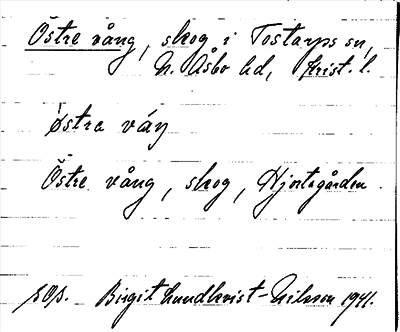 Östre vång, skog i Tostarps sn,
N. Åsbo hd, Krist. l.
østrə våŋ
Östre vång, skog, Hjortsgården.
sOp. Birgit Lundkvist-Nilsson 1941.